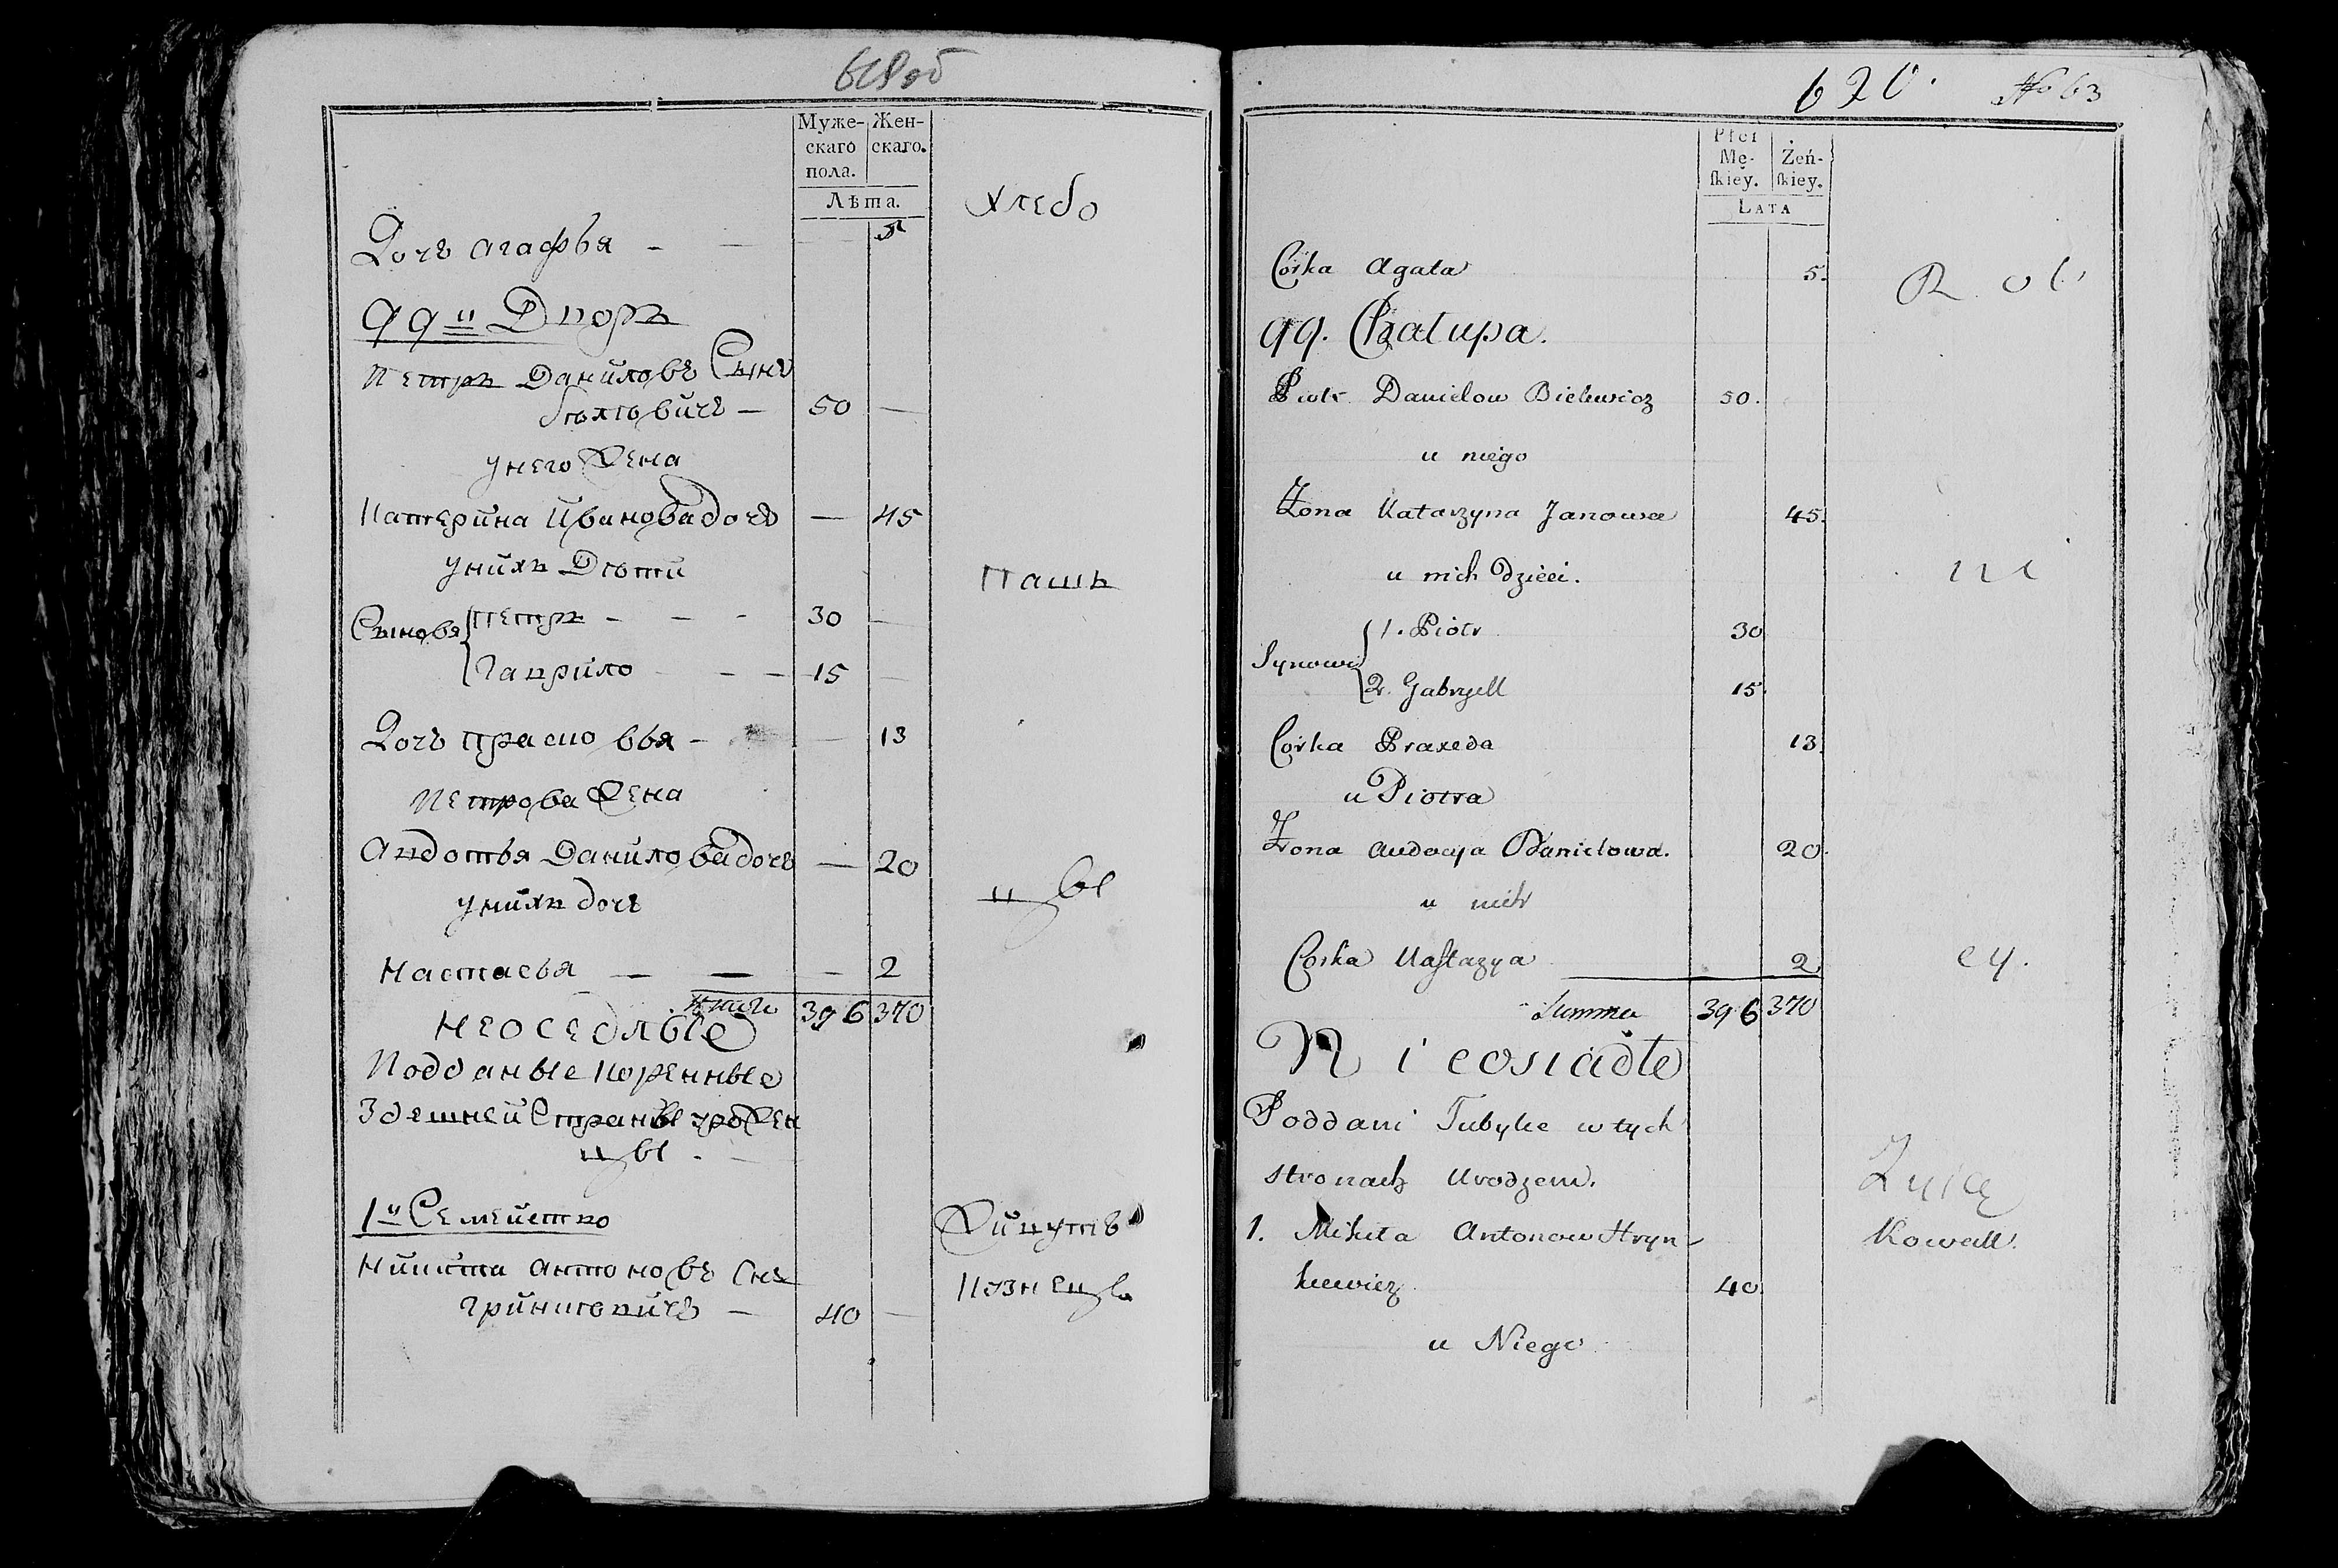 Муже- Жен-
скаго скаго.
пола.
Лѣта.
хлебо
Дочь агафья - 5
99й Дворъ
Петръ Даниловъ Сынъ
Бѣлѣвичь - 50 -
унего Жена
Катерина Иванова дочь - 45
унихъ Дѣти
пашъ
Сыновя Петръ - - - 30 -
Гаврило - - - 15 -
Дочь прасковья - - 13
Петрова Жена
Авдотья Данилова дочь - 20
цы
унихъ дочь
Настасья - - - 2
итаго 396 370
неоседлые
Подданые коренные
Здешней Страны урожен
цы
1й Семейство
Живутъ
Никита антоновъ Снъ
кузнецъ
гринкѣвичь - 40 -
620. No 63
Płci
Mę- Żeń-
skiey. skiey.
LATA
Córka Agata 5.
Rol
99. Chałupa.
Piotr Danielow Bielewicz 50.
u niego
Żona Katarzyna Janowa 45.
u nich dzieci.
ni
Synowie 1. Piotr 30
2. Gabryell 15.
Córka Praxeda 13.
u Piotra
Żona Audocya Danielowa. 20.
u nich
Corka Nastazya 2
cy.
Summa 396 370
Nieosiadłe
Poddani Tubylce w tych
stronach Urodzeni.
Żyią
1. Mikita Antonow Hryn-
Kowall.
kiewicz 40.
u Niego